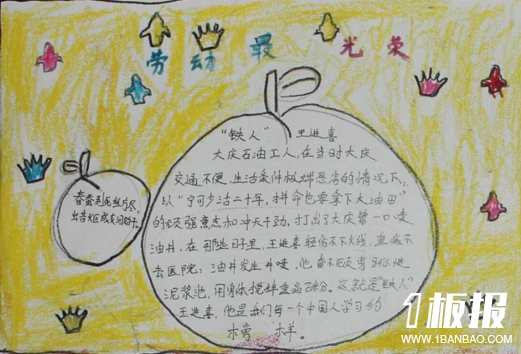 劳动最光荣
"铁人" 王进喜
大庆石油工人,在当时大庆
交通不便,生活条件极端恶劣的情况下,
以"宁可少活二十年,拼命也要拿下大油田"
的顽强意志和冲天干劲,打出了大庆第一口喷
油井。在那些日子里,王进喜轻伤不下火线,重病不
去医院;油井发生井喷,他奋不顾身跳进
泥浆池,用身体搅拌重晶石粉。这就是"铁人"
王进喜,他是我们每一个中国人学习的
榜样。
春蚕到死丝方尽
1板报
WWW.1BANBAO.COM